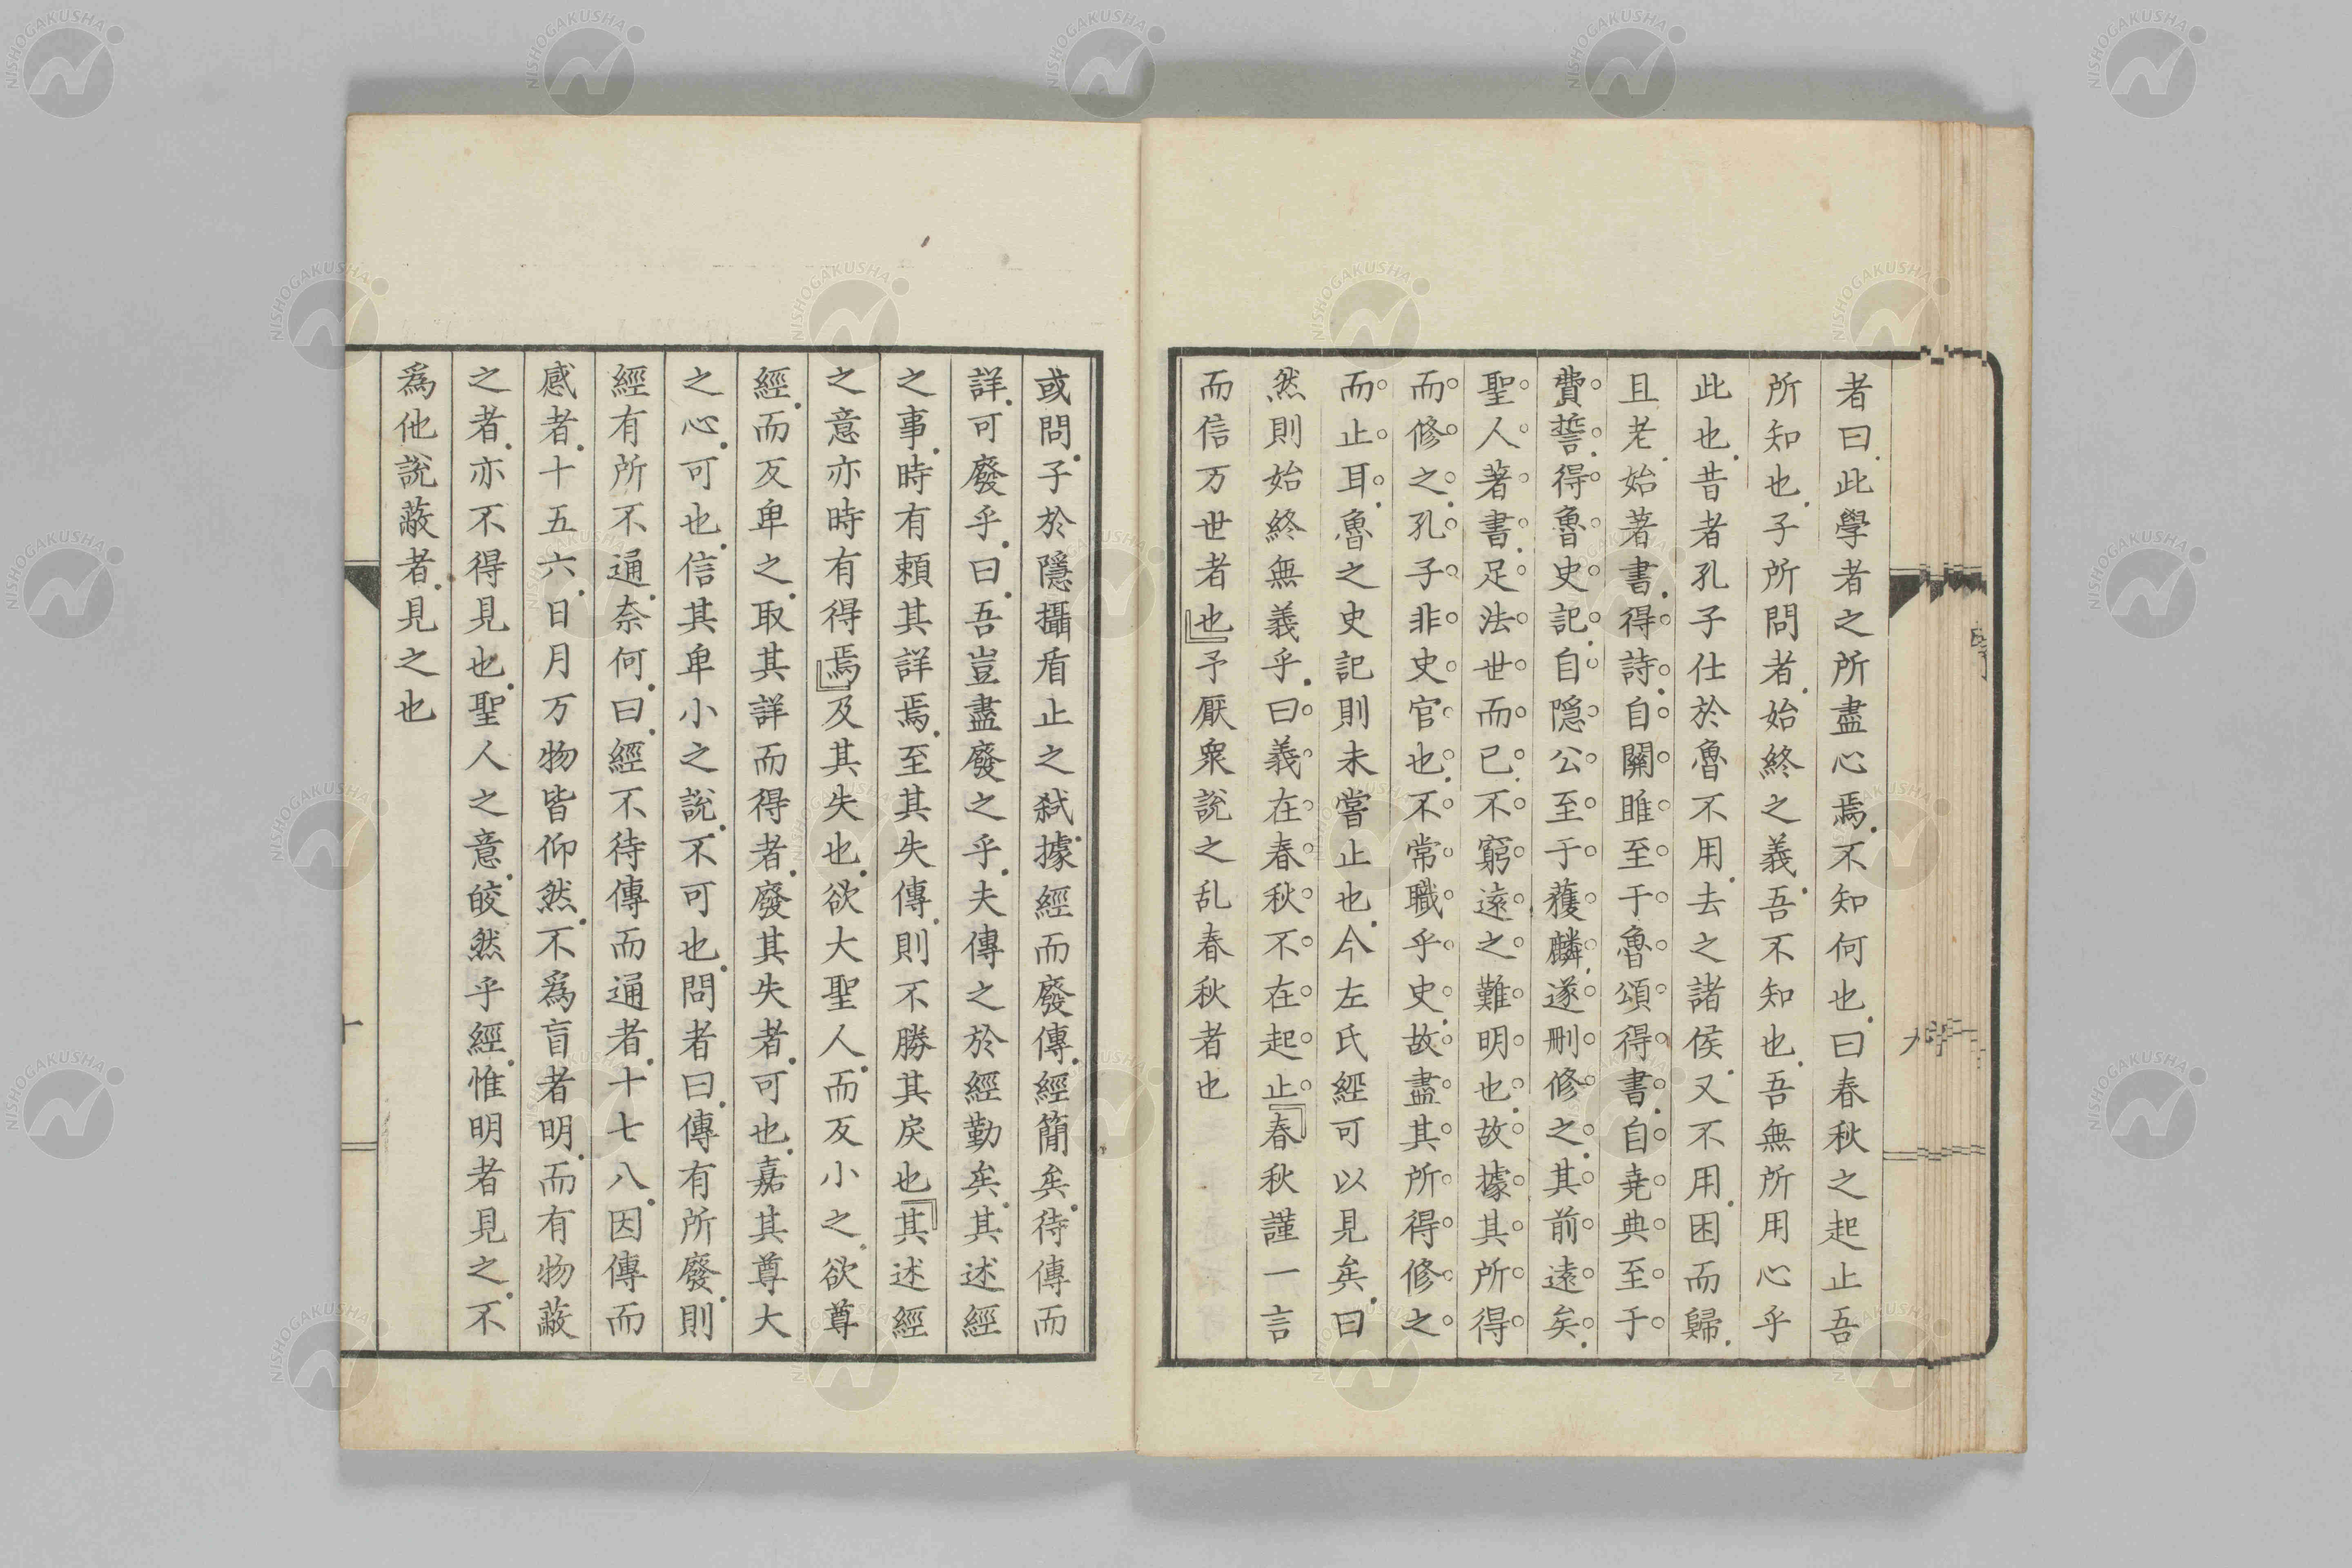 者曰此學者之所盡心焉不知何也曰春秋之起止吾
所知也子所問者始終之義吾不知也吾無所用心乎
此也昔者孔子仕於魯不用去之諸侯又不用困而歸
且老始著書得詩自關雎至于魯頌得書自堯典至于
費誓得魯史記自隠公至于獲麟遂刪修之其前遠矣
聖人著書足法世而已不窮遠之難明也故據其所得
而修之孔子非史官也不常職乎史故盡其所得修之
而止耳魯之史記則未嘗止也今左氏經可以見矣曰
然則始終無義乎曰義在春秋不在起止春秋謹一言
而信万世者也予厭衆說之乱春秋者也
或問子於隱攝盾止之弑據經而廢傳經簡矣待傳而
詳可廢乎曰吾豈盡廢之乎夫傳之於經勤矣其述經
之事時有賴其詳焉至其失傳則不勝其戻也其述經
之意亦時有得焉及其失也欲大聖人而反小之欲尊
經而反卑之取其詳而得者廢其失者可也嘉其尊大
之心可也信其卑小之說不可也問者曰傳有所廢則
經有所不通奈何曰經不待傳而通者十七八因傳而
惑者十五六日月万物皆仰然不爲盲者明而有物蔽
之者亦不得見也聖人之意皎然乎經惟明者見之不
爲他說蔽者見之也
十
NISHOGAKUSHA